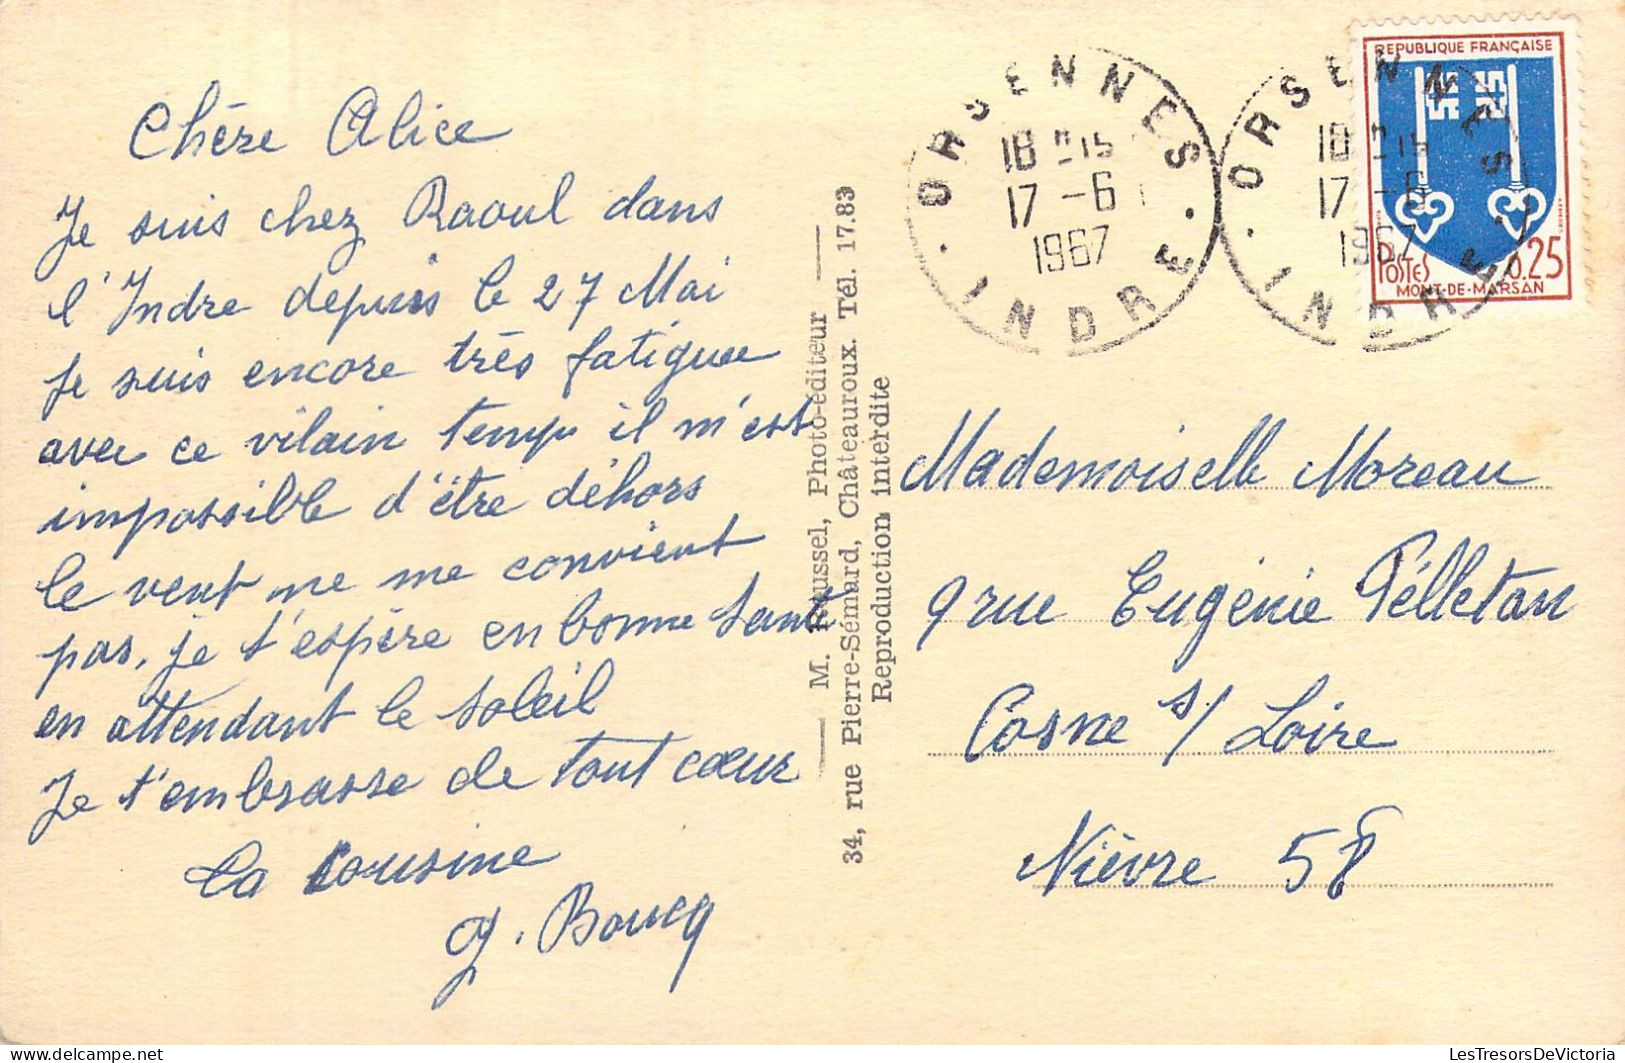 Chère Alice
Je suis chez Raoul dans
l'Indre depuis le 27 Mai
je suis encore très fatiguee
avec ce vilain temps il m'est
impossible d'être déhors
le vent ne me convient
pas, je t'espère en bonne Santé
en attendant le soleil
Je t'embrasse de tout cœur
La cousine
G. Boucq
M. Roussel, Photo-éditeur
34, rue Pierre-Sémard, Châteauroux. Tél. 17.83
Reproduction interdite
ORSENNES
18 H 15
17 - 6
1967
INDRE
ORSENNES
18 H 15
17 - 6
1967
INDRE
REPUBLIQUE FRANÇAISE
POSTES 0.25
MONT-DE-MARSAN
Mademoiselle Moreau
9 rue Eugénie Pélletan
Cosne s/ Loire
Nièvre 58
LesTresorsDeVictoria